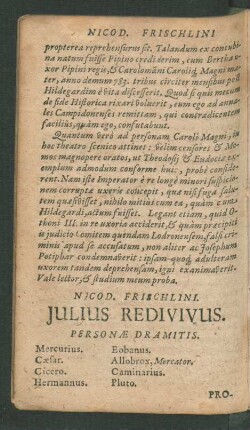 NICOD. FRISCHLINI
propterea reprehensurus sit. Talandum ex concubi-
na natum fuisse Pipino crediderim, cum Bertha v-
xor Pipini regis, & Carolomāni Caroliq́; Magni ma-
ter, anno demum 783. tribus circiter mensibus post
Hildegardim è vita discesserit. Quod si quis mecum
de fide Historica rixari voluerit, eum ego ad anna-
les Campidonenses remittam, qui contradicentem
faciliùs, quàm ego, confutabunt.
Quantum verò ad personam Caroli Magni, in
hoc theatro scenico attinet: velim censores & Mo-
mos magnopere oratos, ut Theodosij & Eudoxiæ ex-
emplum admodum conforme huic, probè conside-
rent. Nam iste Imperator è re longè minori suspicio-
nem corruptæ uxoris concepit, quæ nisi fuga salu-
tem quæsivisset, nihilo mitiùs cum ea, quàm cum
Hildegardi, actum fuisset. Legant etiam, quid O-
theni III. in re uxoria acciderit, & quàm præcipiti
is judicio Comitem quendam falsi cri-
minis apud se accusatum, non aliter ac Josephum
Potiphar condemnaverit: ipsam quoq́; adulteram
uxorem tandem deprehensam, igni exanimaverit.
Vale lector, & studium meum proba.
NICOD. FRISCHLINI.
JULIUS REDIVIVUS.
PERSONÆ DRAMITIS.
Mercurius. Eobanus.
Cæsar. Allobrox, Mercator.
Cicero. Caminarius.
Hermannus. Pluto.
PRO-